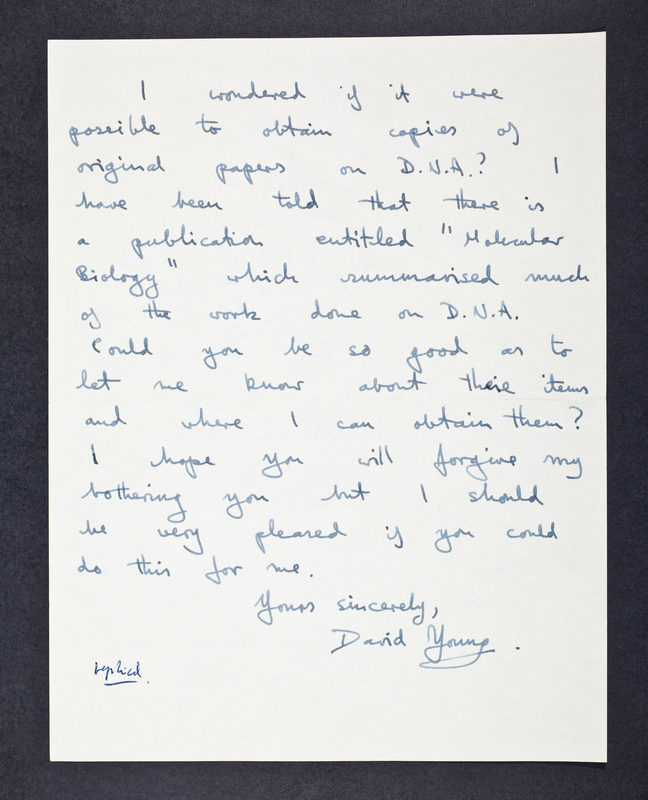 I wondered if it were
possible to obtain copies of
original papers on D.N.A.? I
have been told that there is
a publication entitled "Molecular
Biology" which summarised much
of the work done on D.N.A.
Could you be so good as to
let me know about these items
and where I can obtain them?
I hope you will forgive my
bothering you but I should
be very pleased if you could
do this for me.
Yours sincerely,
David Young.
replied.